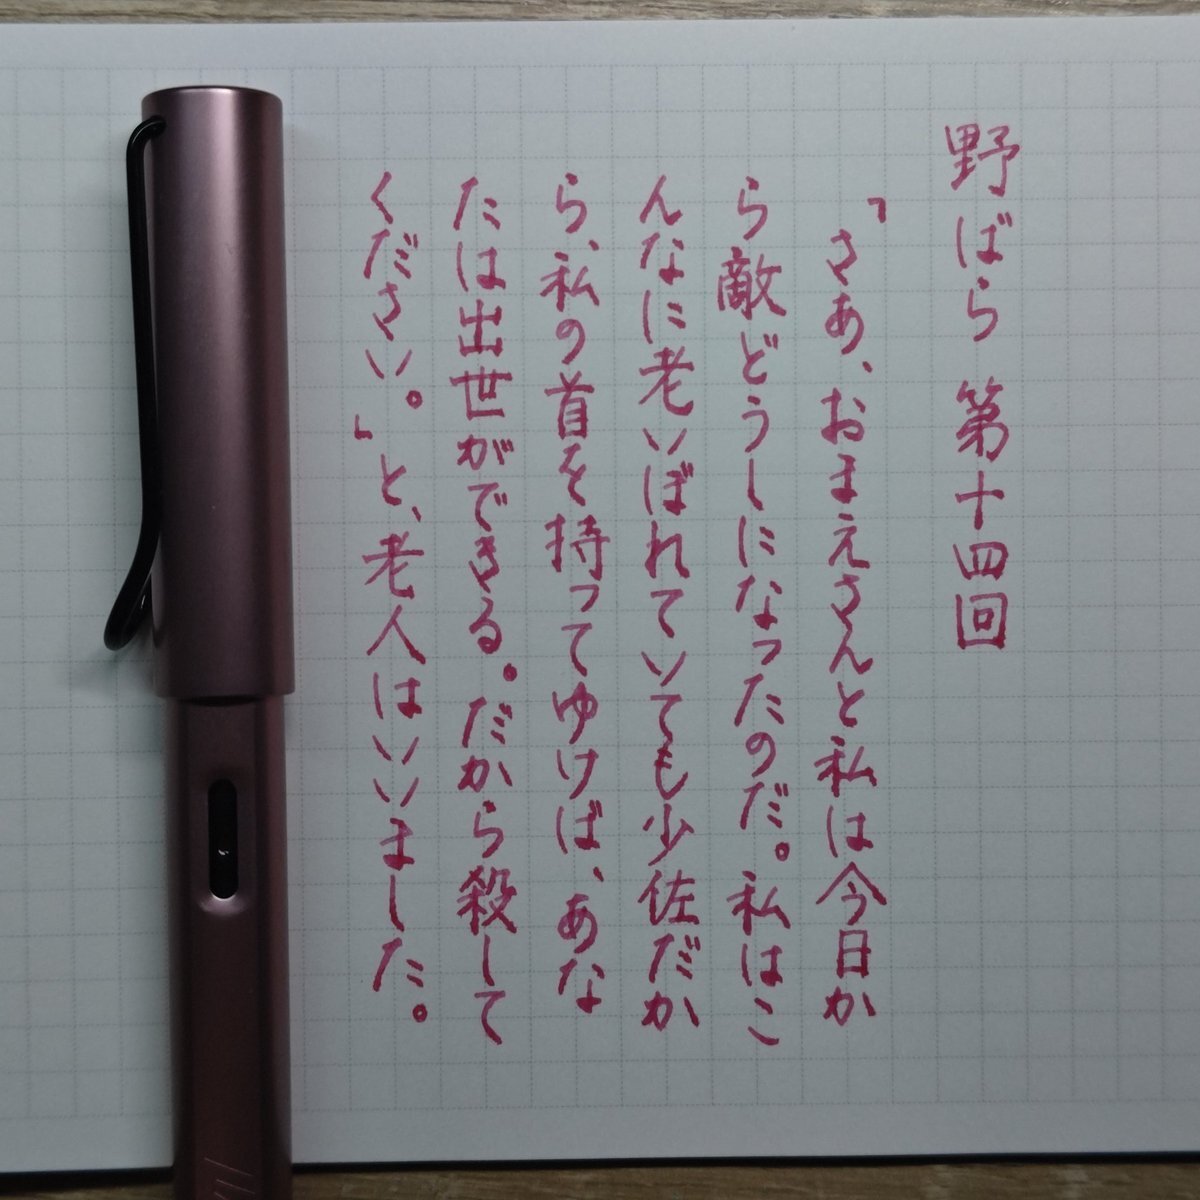 野ばら 第十四回
「さあ、おまえさんと私は今日か
ら敵どうしになったのだ。私はこ
んなに老いぼれていても少佐だか
ら、私の首を持ってゆけば、あな
たは出世ができる。だから殺して
ください。」と、老人はいいました。